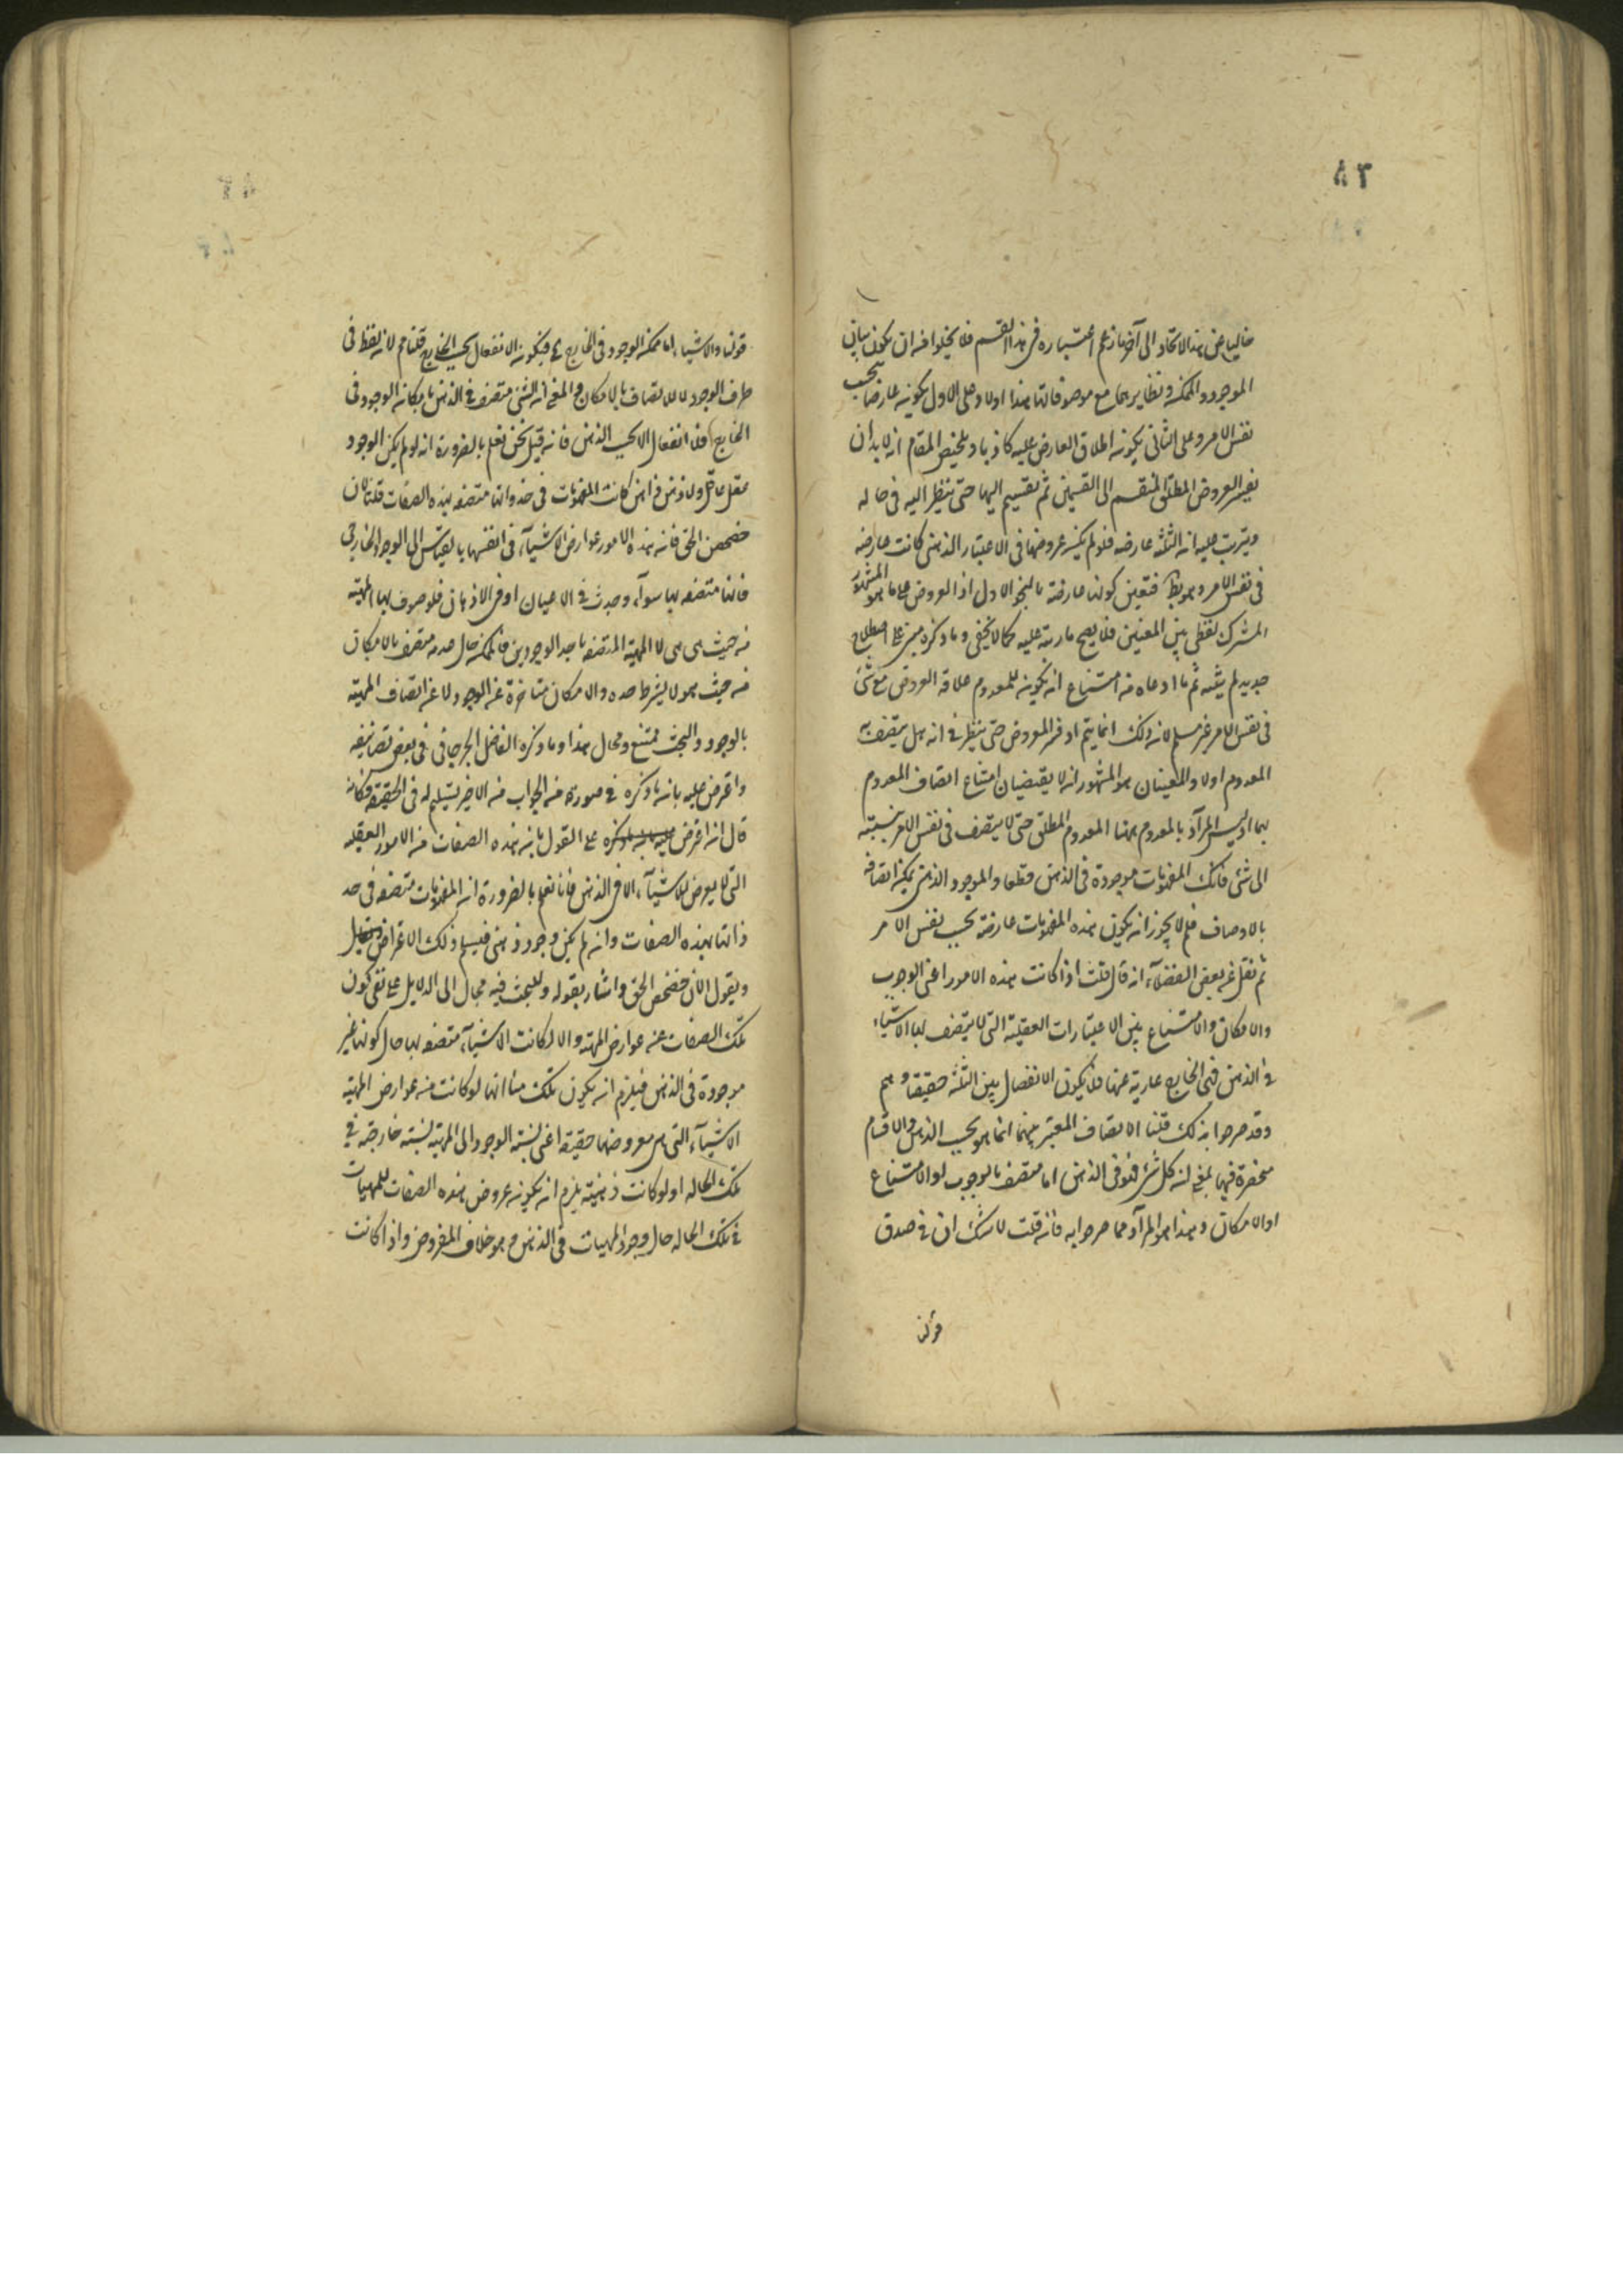 ٨٣
خاليا عن هذا الاتحاد الى آخر ما زعم اعتباره في هذا القسم فلا يخلوا من ان يكون بيان
الموجود والممكنة ونظايرهما مع موصوفاتها هذا اولا وعلى الاول يكون عارضا بحسب
نفس الامر وعلى الثاني يكون اطلاق العارض عليه كاذبا وتلخيص المقام انه لا بد ان
يفسر العروض المطلق المنقسم الى القسمين ثم تقسيم اليهما حتى ينظر اليه في حاله
ويترتب عليه ان الثلثة عارضة فلو لم يكن عروضها في الاعتبار الذهني كانت عارضة
في نفس الامر وهو بط فتعين كونها عارضة بالنحو الاول اذ العروض على ما هو المشهور
المشترك لفظي بين المعنيين فلا يصح ما رتبه عليه كما لا يخفى وما ذكره مبني على اصطلاح
جديد لم يثبته ثم ما ادعاه من امتناع ان يكون للمعدوم علاقة العروض مع شئ
في نفس الامر غير مسلم لان ذلك انما يتم او فسر العروض حتى ينظر في انه هل يتصف به
المعدوم اولا والمعنيان هو المشهور انه لا يقتضيان امتناع اتصاف المعدوم
بهما اذ ليس المراد بالمعدوم ههنا المعدوم المطلق حتى لا يتصف في نفس الامر بنسبته
الى شئ فان تلك المفهومات موجودة في الذهن قطعا والموجود الذهني يمكن اتصافه
بالاوصاف فلم لا يجوز ان يكون هذه المفهومات عارضة بحسب نفس الامر
ثم نقل عن بعض الفضلاء انه قال قلت اذا كانت هذه الامور اعني الوجوب
والامكان والامتناع بين الاعتبارات العقلية التي لا يتصف بها الاشياء
في الذهن ففي الخارج عارية عنها فلا يكون الانفصال بين الثلثة حقيقا وهم
وقد صرحوا بذلك قلنا الاتصاف المعتبر بينهما انما هو بحسب الذهن والاقسام
منحصرة فيها بمعنى ان كل شئ فهو في الذهن اما متصف بالوجوب او الامتناع
او الامكان وهذا هو المراد مما صرحوا به فان قلت لا شك ان في صدق
قولنا
قولنا والاشياء اما ممكنة الوجود في الخارج فيكون الانفعال بحسب الخارج قلنا لانه لفظ في
طرف الوجود لا للاتصاف بالامكان والمعنى ان الشئ متصف في الذهن بامكان الوجود في
الخارج فلا انفعال الا بحسب الذهن فان قيل نحن نعلم بالضرورة انه لو لم يكن الوجود
عقل عاقل ولا ذهن ذاهن كانت المفهومات في حد ذواتها متصفة بهذه الصفات قلنا الآن
حصحص الحق فان هذه الامور عوارض الاشياء في انفسها بالقياس الى الوجود الخارجي
فانها متصفة بها سواء وجدت في الاعيان او في الاذهان فلموصوف بها الماهية
من حيث هي هي لا المهية المتصفة باحد الوجودين فالممكن حال عدمه متصف بالامكان
من حيث هو لا بشرط عدمه والامكان متاخرة عن الوجود لا عن اتصاف الماهية
بالوجود والبحث ممتنع ومحال هذا وما ذكره الفاضل الجرجاني في بعض تصانيفه
واعترض عليه بانه ما ذكره في صورة من الجواب من الاخير تسليم له في الحقيقة فكانه
قال انه اعترض على القول بان هذه الصفات من الامور العقلية
التي لا يعرض للاشياء الا في الذهن فانا نعلم بالضرورة ان المفهومات متصفة في حد
ذاتها بهذه الصفات وان لم يكن وجود ذهني فيسلم ذلك الاعتراض
ويقول الآن حصحص الحق واشار بقوله وللبحث فيه مجال الى الدلايل على نفي كون
تلك الصفات عنه عوارض المهية والا لكانت الاشياء متصفة بها حال كونها غير
موجودة في الذهن فيلزم ان يكون تلك لو كانت من عوارض المهية
الاشياء التي هي معروضها حقيقة اعني نسبة الوجود الى المهية نسبة خارجة في
تلك الحالة او لو كانت ذهنية يلزم ان يكون عروض هذه الصفات للمهيات
في تلك الحالة حال وجود المهيات في الذهن وهو خلاف المفروض واذا كانت